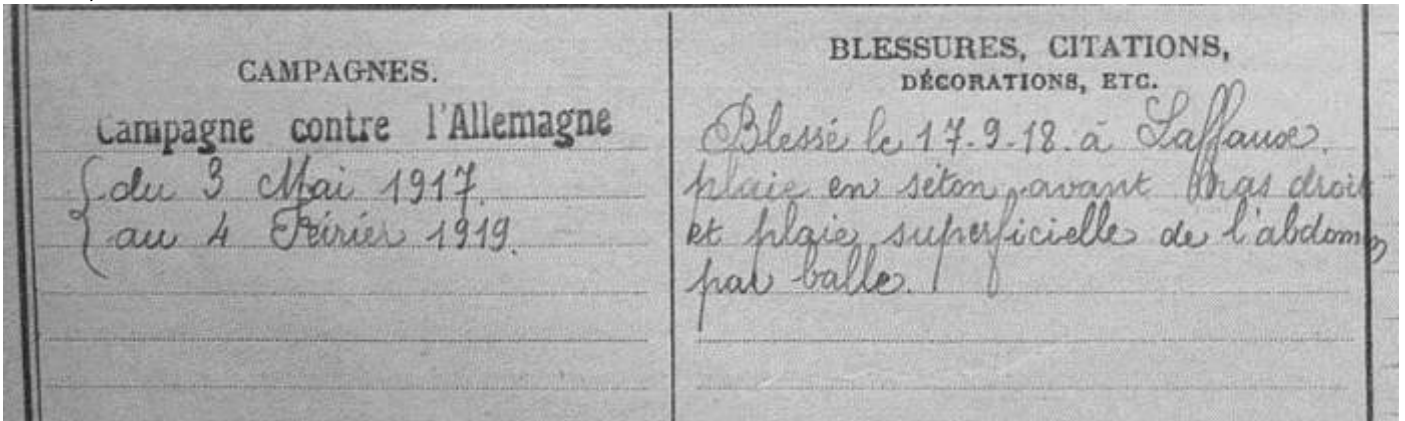 CAMPAGNES.
Campagne contre l'Allemagne
du 3 Mai 1917.
au 4 Février 1919.
BLESSURES, CITATIONS,
DÉCORATIONS, ETC.
Blessé le 17-9-18. à Laffaux.
plaie en séton, avant bras droit
et plaie superficielle de l'abdomen
par balle.